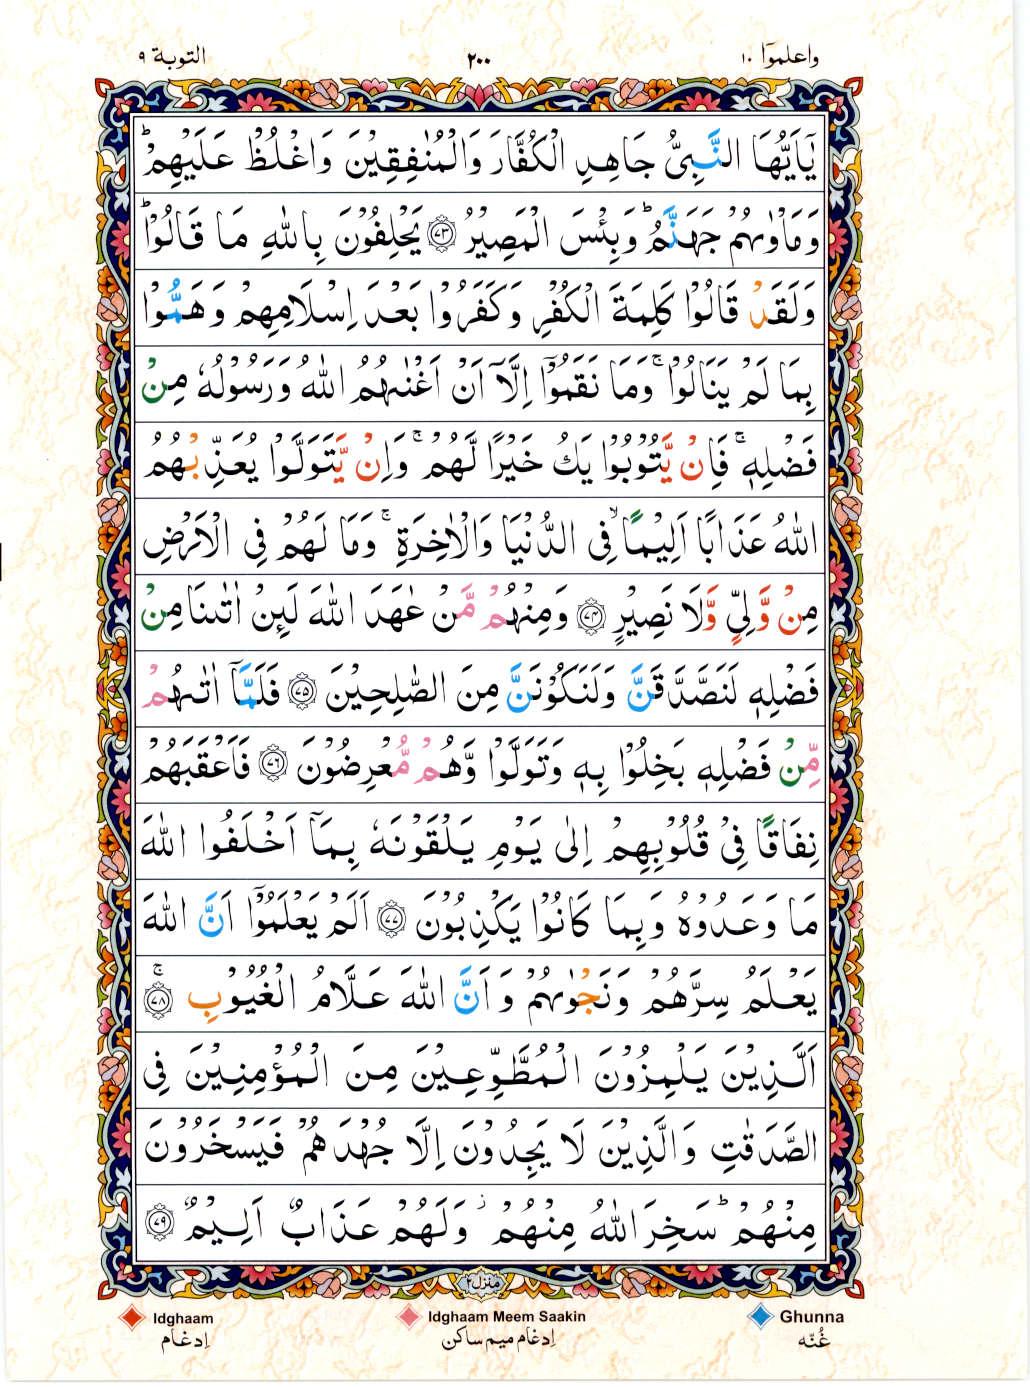 واعلموٓا ١٠
٢٠٠
التوبة ٩
يٰۤاَيُّهَا النَّبِيُّ جَاهِدِ الْكُفَّارَ وَالْمُنٰفِقِيْنَ وَاغْلُظْ عَلَيْهِمْ ؕ
وَمَاْوٰىهُمْ جَهَنَّمُ ؕ وَبِئْسَ الْمَصِيْرُ ۝٧٣ يَحْلِفُوْنَ بِاللّٰهِ مَا قَالُوْا ؕ
وَلَقَدْ قَالُوْا كَلِمَةَ الْكُفْرِ وَكَفَرُوْا بَعْدَ اِسْلَامِهِمْ وَهَمُّوْا
بِمَا لَمْ يَنَالُوْا ۚ وَمَا نَقَمُوْۤا اِلَّاۤ اَنْ اَغْنٰىهُمُ اللّٰهُ وَرَسُوْلُهٗ مِنْ
فَضْلِهٖ ۚ فَاِنْ يَّتُوْبُوْا يَكُ خَيْرًا لَّهُمْ ۚ وَاِنْ يَّتَوَلَّوْا يُعَذِّبْهُمُ
اللّٰهُ عَذَابًا اَلِيْمًا ۙ فِي الدُّنْيَا وَالْاٰخِرَةِ ۚ وَمَا لَهُمْ فِي الْاَرْضِ
مِنْ وَّلِيٍّ وَّلَا نَصِيْرٍ ۝٧٤ وَمِنْهُمْ مَّنْ عٰهَدَ اللّٰهَ لَئِنْ اٰتٰىنَا مِنْ
فَضْلِهٖ لَنَصَّدَّقَنَّ وَلَنَكُوْنَنَّ مِنَ الصّٰلِحِيْنَ ۝٧٥ فَلَمَّاۤ اٰتٰىهُمْ
مِّنْ فَضْلِهٖ بَخِلُوْا بِهٖ وَتَوَلَّوْا وَّهُمْ مُّعْرِضُوْنَ ۝٧٦ فَاَعْقَبَهُمْ
نِفَاقًا فِيْ قُلُوْبِهِمْ اِلٰى يَوْمِ يَلْقَوْنَهٗ بِمَاۤ اَخْلَفُوا اللّٰهَ
مَا وَعَدُوْهُ وَبِمَا كَانُوْا يَكْذِبُوْنَ ۝٧٧ اَلَمْ يَعْلَمُوْۤا اَنَّ اللّٰهَ
يَعْلَمُ سِرَّهُمْ وَنَجْوٰىهُمْ وَاَنَّ اللّٰهَ عَلَّامُ الْغُيُوْبِ ۚ ۝٧٨
اَلَّذِيْنَ يَلْمِزُوْنَ الْمُطَّوِّعِيْنَ مِنَ الْمُؤْمِنِيْنَ فِي
الصَّدَقٰتِ وَالَّذِيْنَ لَا يَجِدُوْنَ اِلَّا جُهْدَهُمْ فَيَسْخَرُوْنَ
مِنْهُمْ ؕ سَخِرَ اللّٰهُ مِنْهُمْ ؗ وَلَهُمْ عَذَابٌ اَلِيْمٌ ۝٧٩
منزل٢
Idghaam Idghaam Meem Saakin Ghunna
اِدغام اِدغام میم ساکن غُنّه